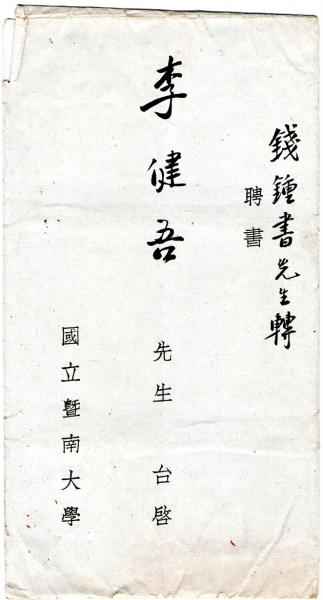 錢鍾書先生轉
聘書
李健吾先生台啓
國立暨南大學